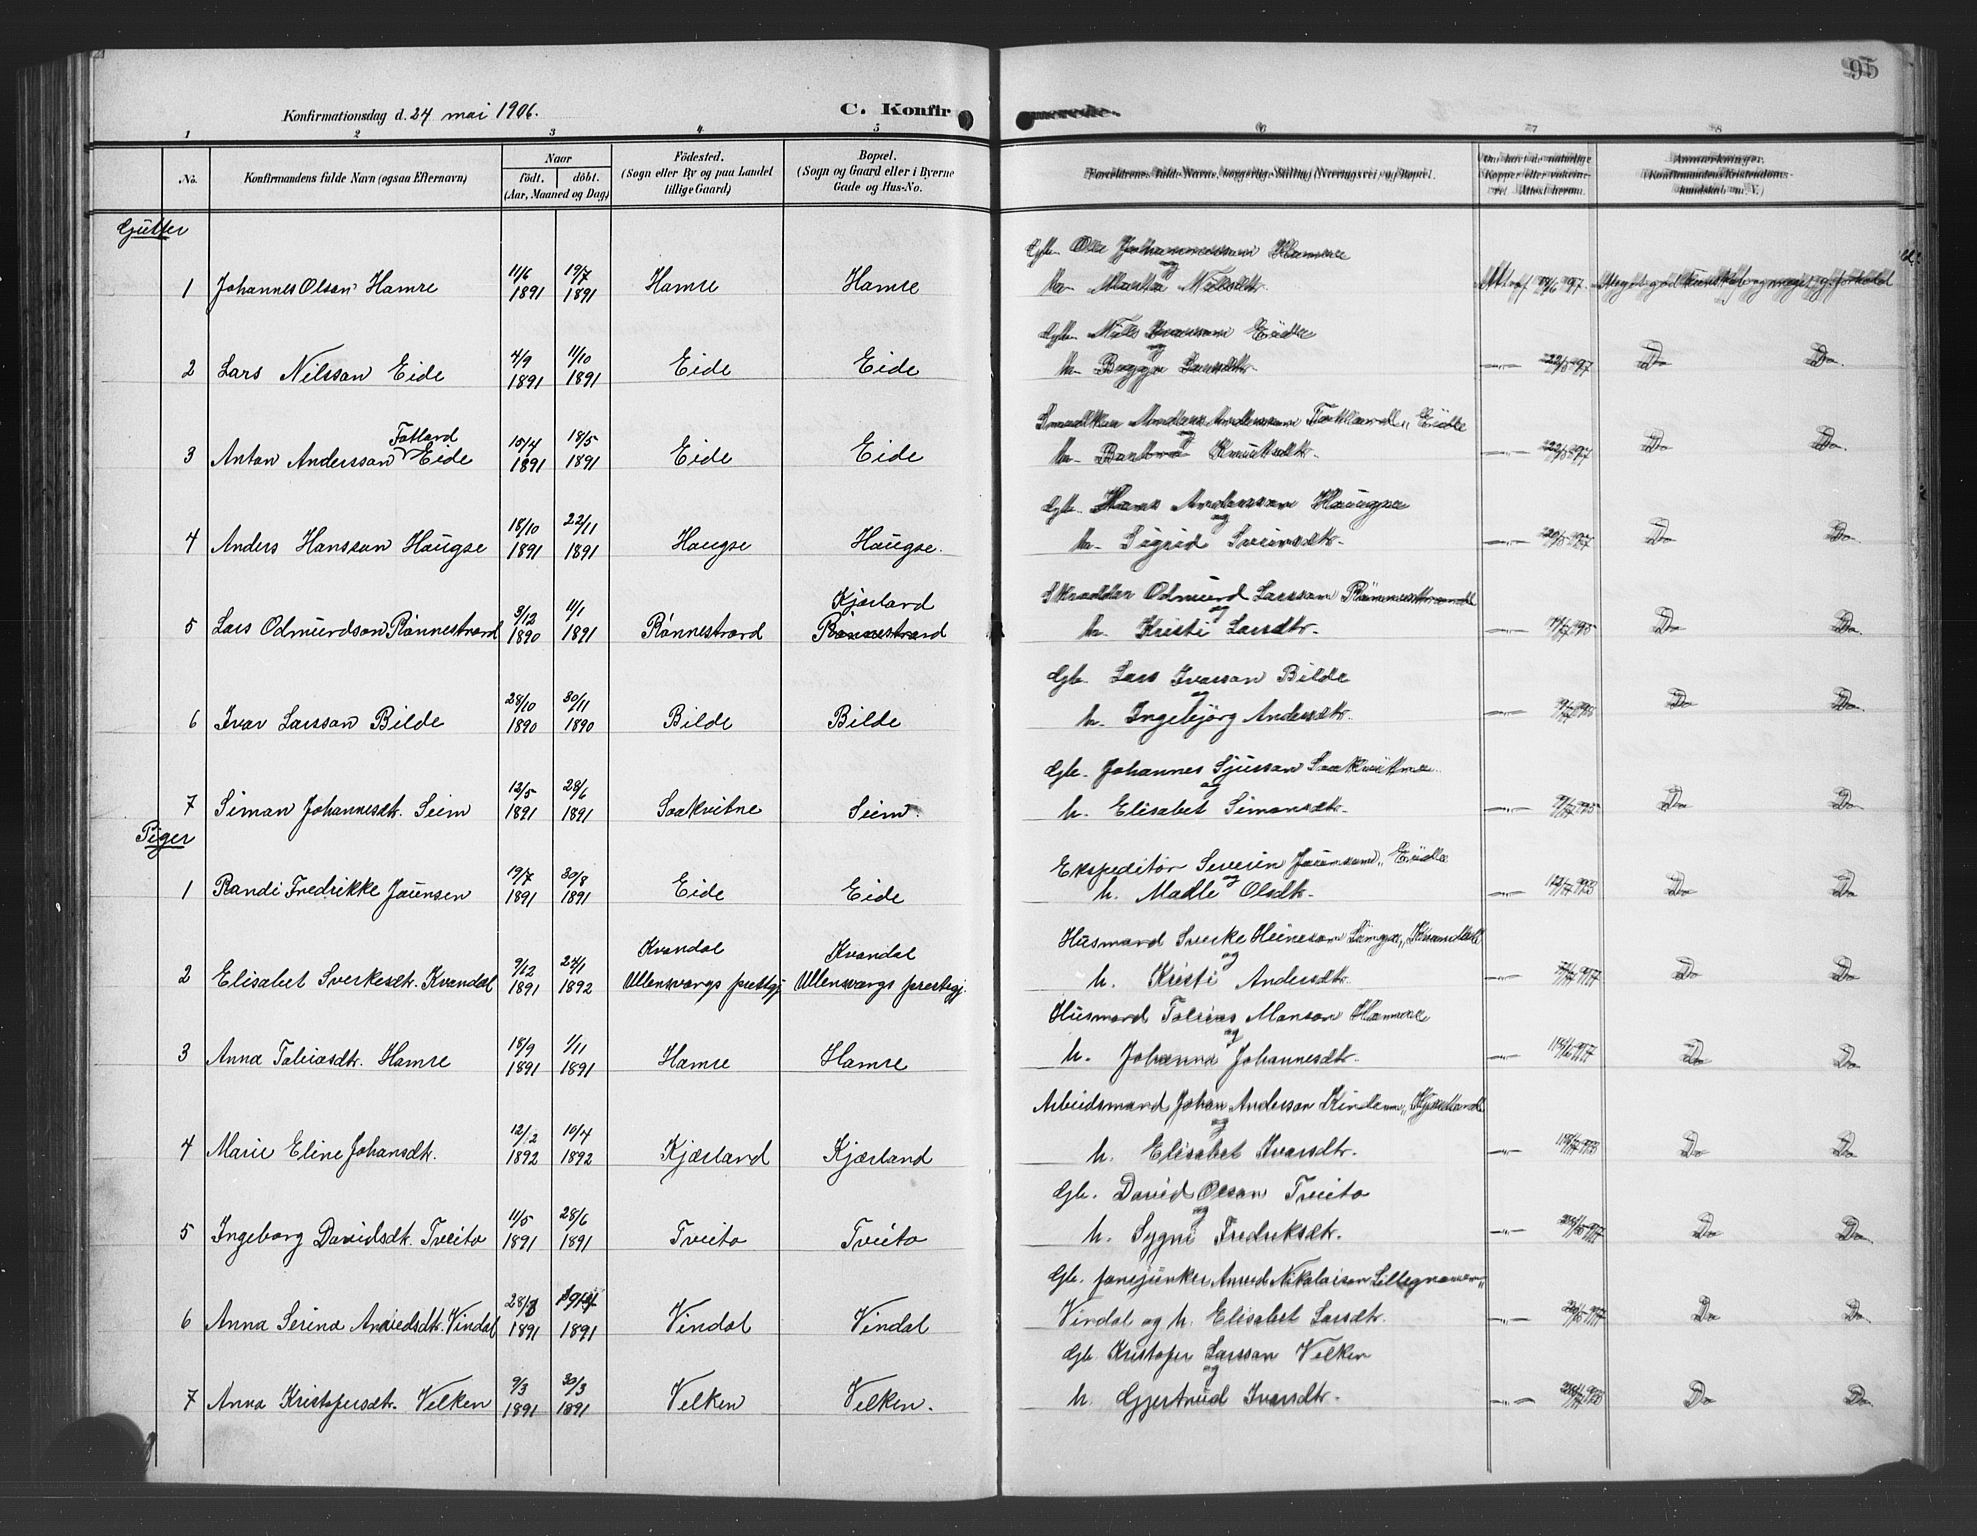 95
Konfirmationsdag d. 24 mai 1906.
C. Konfirmerede.
1 2 3 4 5 6 7 8
No.
Konfirmandens fulde Navn (ogsaa Efternavn)
Naar
födt. döbt.
(Aar, Maaned og Dag)
Födested.
(Sogn eller By og paa Landet
tillige Gaard)
Bopæl.
(Sogn og Gaard eller i Byerne
Gade og Hus-No.
Forældrenes fulde Navne, borgerlige Stilling (Næringsvei) og Bopæl.
Om havt de naturlige
Kopper eller vaksineret.
Attest herom.
Anmærkninger.
(Konfirmandens Kristendomskundskab m. V.)
Gutter
1 Johannes Olsen Hamre 11/6 1891 19/7 1891 Hamre Hamre
Gb. Ole Johannesson Hamre
og
h. Marta Nilsdtr.
2 Lars Nilsson Eide 4/9 1891 11/10 1891 Eide Eide
Gb. Nils Eide
og
h. Larsdtr. Do Do
3 Anton Andersson Fatland Eide 10/4 1891 18/5 1891 Eide Eide
Anders Andersson Fatland, Eide
og
h. Knutsdtr. Do Do
4 Anders Hansson Haugse 18/10 1891 22/11 1891 Haugse Haugse.
Gb. Hans Andersson Haugse
og
h. Sigrid Sveinsdtr. Do Do
5 Lars Odmundson Rønnestrand 3/12 1890 11/1 1891 Rønnestrand Kjærland Rønnestrand
Skrædder Odmund Larsson Rønnestrand
og
h. Kristi Larsdtr. Do Do
6 Ivar Larsson Bilde 28/10 1890 30/11 1890 Bilde Bilde
Gb. Lars Ivarson Bilde
og
h. Ingebjørg Andersdtr. Do Do
7 Simon Johannesdtr. Seim 12/5 1891 28/6 1891 Saakvitne Seim.
Gb. Johannes Sjurson Saakvitne
og
h. Elisabet Simonsdtr. Do Do
Piger
1 Randi Fredrikke Jaunsen 19/7 1891 30/8 1891 Eide Eide
Ekspeditør Severin Jaunsen, Eide
og
h. Madle Olsdtr. Do Do
2 Elisabet Sverkesdtr. Kvandal 9/12 1891 24/1 1892 Kvandal Ullensvangs prestgj. Kvandal Ullensvangs prestegj.
Husmand Sverke Heineson, Kvandal
og
h. Kristi Andersdtr. Do Do
3 Anna Tobiasdtr. Hamre 18/9 1891 1/11 1891 Hamre Hamre
Husmand Tobias Monson Hamre
og
h. Johanna Johannesdtr. Do Do
4 Marie Eline Johansdtr. 12/2 1892 10/4 1892 Kjærland Kjærland
Arbeidsmand Johan Anderson Kindem, Kjærland
og
h. Elisabet Ivarsdtr. Do Do
5 Ingeborg Davidsdtr. Tveito 11/5 1891 28/6 1891 Tveito Tveito
Gb. David Olson Tveito
og
h. Sygni Fredriksdtr. Do Do
6 Anna Serina Vindal 1891 1891 Vindal Vindal
Gb. fanejunker Nikolaison Lillegraven,
Vindal og h. Elisabet Larsdtr. Do Do
7 Anna Kristofersdtr. Velken 9/3 1891 30/3 1891 Velken Velken.
Gb. Kristofer Larsson Velken
og
h. Gjertrud Ivarsdtr. Do Do